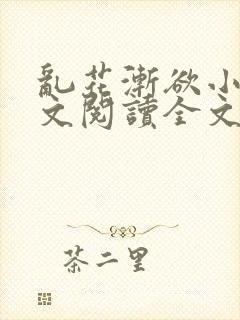 亂花漸欲小
文閱讀全文
茶二里